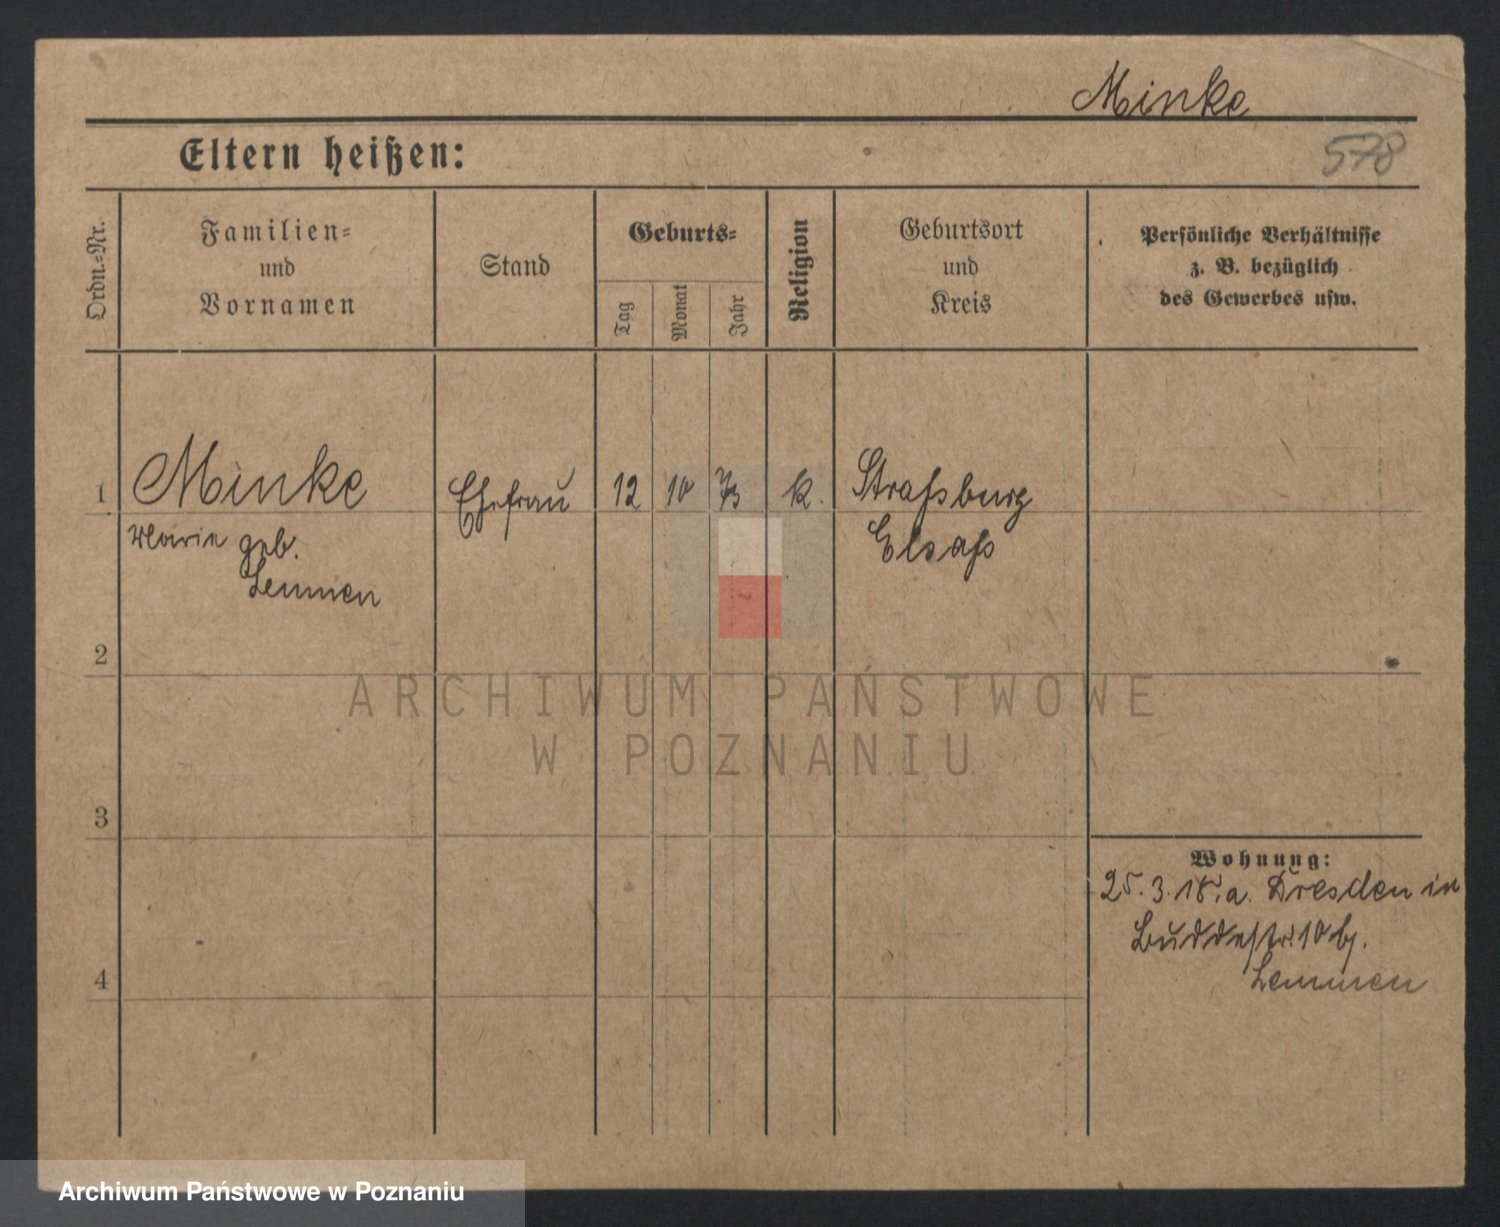 Minke
Eltern heißen:
578
Ordn.-Nr.
Familien-
und
Vornamen
Stand
Geburts-
Tag
Monat
Jahr
Religion
Geburtsort
und
Kreis
Persönliche Verhältnisse
z. B. bezüglich
des Gewerbes usw.
1 Minke Ehefrau 12 10 73 k. Straßburg
Marie geb. Elsaß
Lemmen
2
ARCHIWUM PAŃSTWOWE
W POZNANIU
3
Wohnung:
25.3.18. a. Dresden in
Buddestr. 10 bj.
4 Lemmen
Archiwum Państwowe w Poznaniu